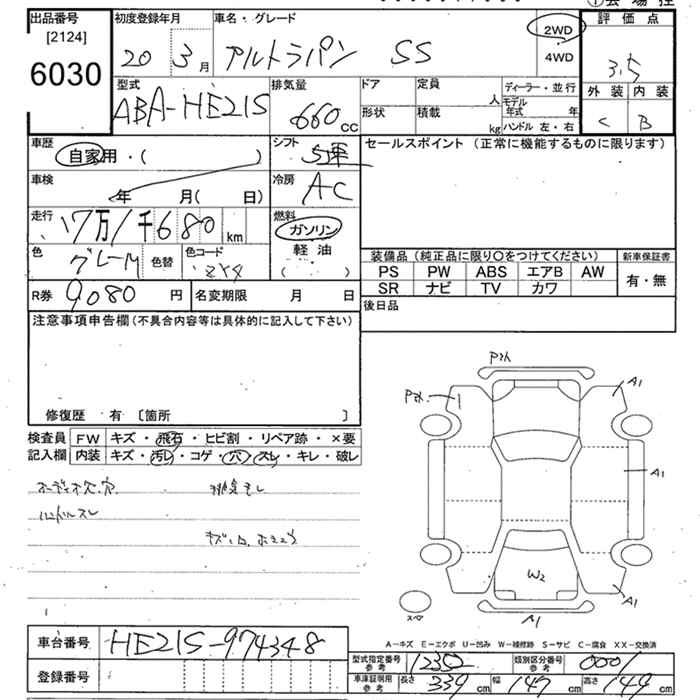 出品番号
[2124]
6030
初度登録年月
20 3月
車名・グレード
アルトラパン SS
2WD
4WD
評価点
3.5
外装 内装
C B
型式
ABA-HE21S
排気量
660cc
ドア
定員
人
形状
積載
kg
ディーラー・並行
モデル年式 年
ハンドル 左・右
車歴
自家用・( )
シフト
車検
年 月( 日)
冷房
AC
走行
17万1千680km
燃料
ガソリン
軽油
( )
色
グレーM
色替
色コード
R券 9080円
名変期限 月 日
セールスポイント (正常に機能するものに限ります)
装備品 (純正品に限り○をつけてください)
新車保証書
PS PW ABS エアB AW
有・無
SR ナビ TV カワ
後日品
注意事項申告欄 (不具合内容等は具体的に記入して下さい)
修復歴 有 〔箇所 〕
検査員 FW キズ・飛石・ヒビ割・リペア跡・×要
記入欄 内装 キズ・汚レ・コゲ・穴・スレ・キレ・破レ
ハンドルスレ
A1
A1
W2
A1
A1
車台番号 HE21S-974348
登録番号
A-キズ E-エクボ U-凹み W-補修跡 S-サビ C-腐食 XX-交換済
型式指定番号 参考
類別区分番号 参考 0001
車庫証明用 参考
長さ 339cm 幅 147cm 高さ 149cm